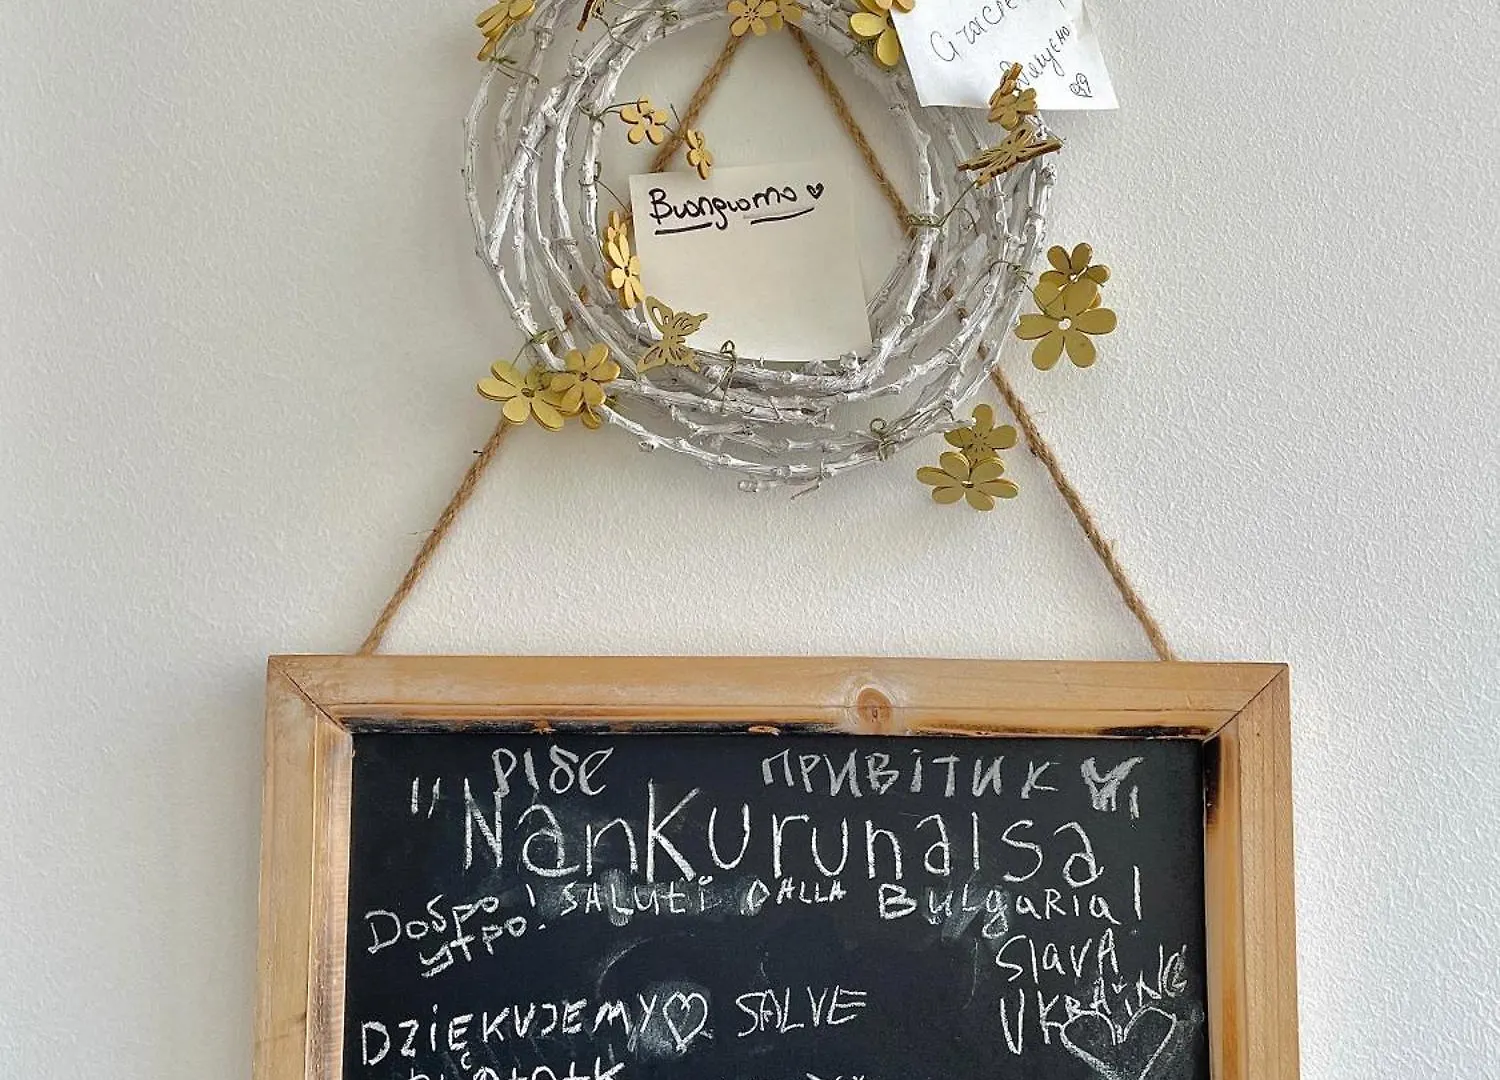 Grazie
Buongiorno ♥
ріве ПРИВІТИК
"Nankurunaisa
Добро утро! SALUti DALLA BulgaRia!
SlavA
UKRAiNE
DZIĘKUJEMY♡ SALVE